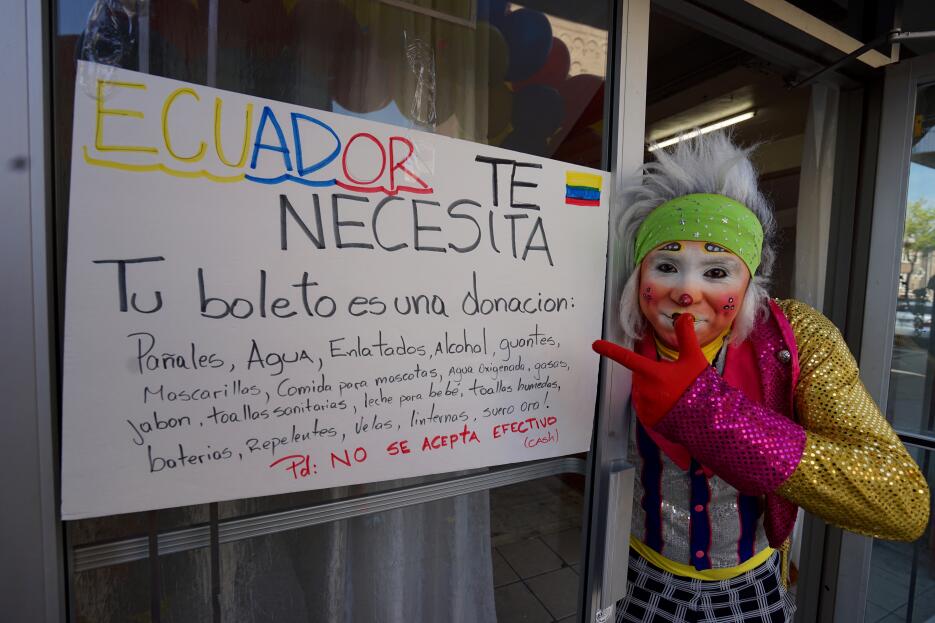 ECUADOR TE
NECESITA
Tu boleto es una donacion:
Pañales, Agua, Enlatados, Alcohol, guantes,
Mascarillas, Comida para mascotas, Agua Oxigenada, gasas,
jabon, toallas sanitarias, leche para bebé, toallas humedas,
baterias, Repelentes, Velas, linternas, suero oral!
Pd: NO SE ACEPTA EFECTIVO
(CASH)